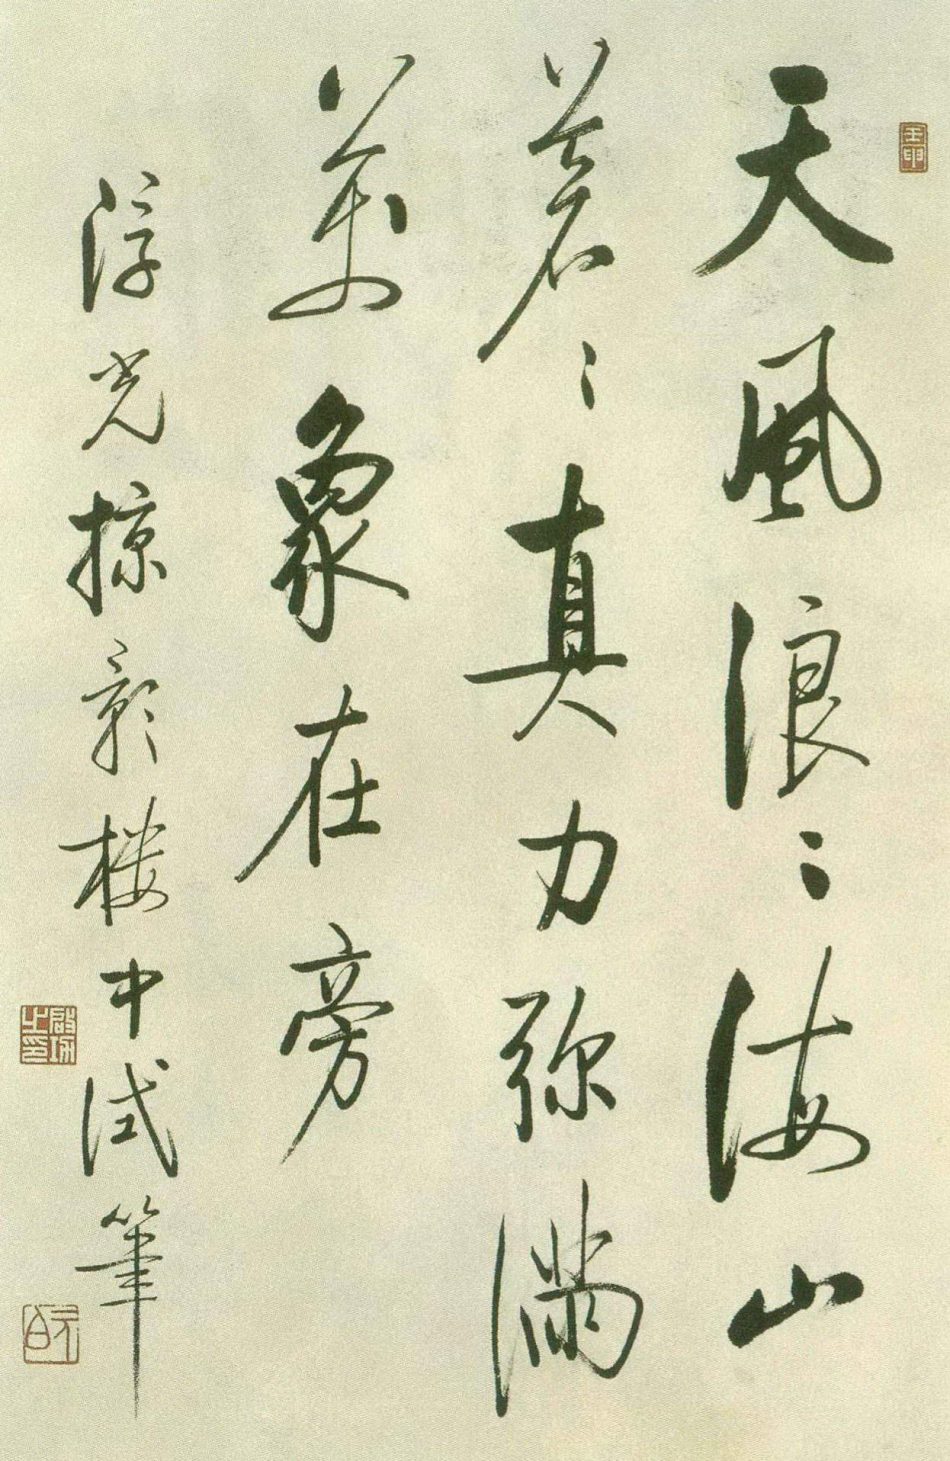 天風浪〻海山
蒼〻真力弥滿
萬象在旁
浮光掠影樓中試筆
啟功之印
元白